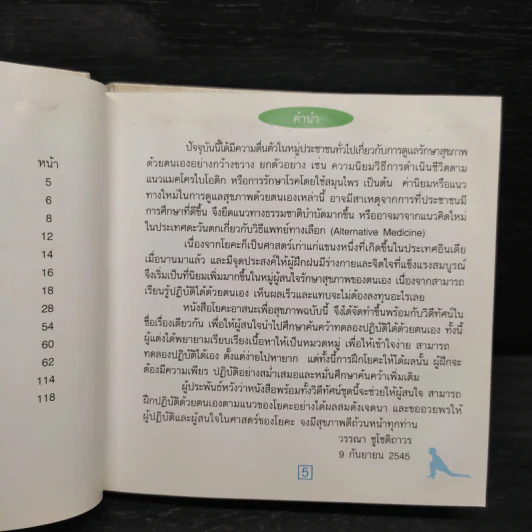 หน้า
5
6
8
12
14
16
18
28
54
60
62
114
118
คำนำ
ปัจจุบันนี้ได้มีความตื่นตัวในหมู่ประชาชนทั่วไปเกี่ยวกับการดูแลรักษาสุขภาพ
ด้วยตนเองอย่างกว้างขวาง ยกตัวอย่าง เช่น ความนิยมวิธีการดำเนินชีวิตตาม
แนวแมคโครไบโอติก หรือการรักษาโรคโดยใช้สมุนไพร เป็นต้น ค่านิยมหรือแนว
ทางใหม่ในการดูแลสุขภาพด้วยตนเองเหล่านี้ อาจมีสาเหตุจากการที่ประชาชนมี
การศึกษาที่ดีขึ้น จึงยึดแนวทางธรรมชาติบำบัดมากขึ้น หรืออาจมาจากแนวคิดใหม่
ในประเทศตะวันตกเกี่ยวกับวิธีแพทย์ทางเลือก (Alternative Medicine)
เนื่องจากโยคะก็เป็นศาสตร์เก่าแก่แขนงหนึ่งที่เกิดขึ้นในประเทศอินเดีย
เมื่อนานมาแล้ว และมีจุดประสงค์ให้ผู้ฝึกฝนมีร่างกายและจิตใจที่แข็งแรงสมบูรณ์
จึงเริ่มเป็นที่นิยมเพิ่มมากขึ้นในหมู่ผู้สนใจรักษาสุขภาพของตนเอง เนื่องจากสามารถ
เรียนรู้ปฏิบัติได้ด้วยตนเอง เห็นผลเร็วและแทบจะไม่ต้องลงทุนอะไรเลย
หนังสือโยคะอาสนะเพื่อสุขภาพฉบับนี้ จึงได้จัดทำขึ้นพร้อมกับวิดีทัศน์ใน
ชื่อเรื่องเดียวกัน เพื่อให้ผู้สนใจนำไปศึกษาค้นคว้าทดลองปฏิบัติได้ด้วยตนเอง ทั้งนี้
ผู้แต่งได้พยายามเรียบเรียงเนื้อหาให้เป็นหมวดหมู่ เพื่อให้เข้าใจง่าย สามารถ
ทดลองปฏิบัติได้เอง ตั้งแต่ง่ายไปหายาก แต่ทั้งนี้การฝึกโยคะให้ได้ผลนั้น ผู้ฝึกจะ
ต้องมีความเพียร ปฏิบัติอย่างสม่ำเสมอและหมั่นศึกษาค้นคว้าเพิ่มเติม
ผู้ประพันธ์หวังว่าหนังสือพร้อมทั้งวิดีทัศน์ชุดนี้จะช่วยให้ผู้สนใจ สามารถ
ฝึกปฏิบัติด้วยตนเองตามแนวของโยคะอย่างได้ผลสมดังเจตนา และขออวยพรให้
ผู้ปฏิบัติและผู้สนใจในศาสตร์ของโยคะ จงมีสุขภาพดีถ้วนหน้าทุกท่าน
วรรณา ชูโชติถาวร
9 กันยายน 2545
5